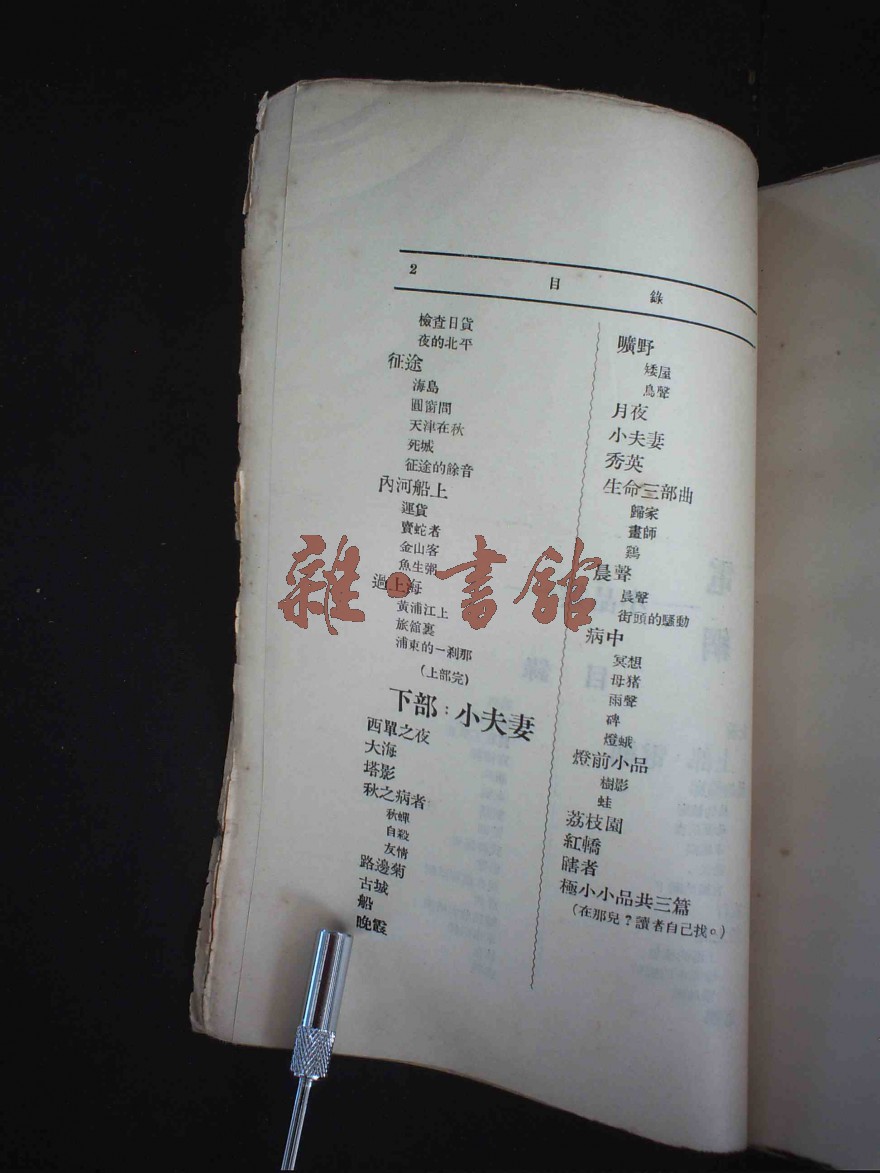 2
目錄
檢查日貨
夜的北平
征途
海島
圓窗間
天津在秋
死城
征途的餘音
內河船上
運貨
賣蛇者
金山客
魚生粥
過上海
黃浦江上
旅館裏
浦東的一剎那
(上部完)
下部：小夫妻
西單之夜
大海
塔影
秋之病者
秋蟬
自殺
友情
路邊菊
古城
船
晚霞
曠野
矮屋
鳥聲
月夜
小夫妻
秀英
生命三部曲
歸家
畫師
鷄
晨聲
晨聲
街頭的騷動
病中
冥想
母猪
雨聲
碑
燈蛾
燈前小品
樹影
蛙
荔枝園
紅轎
瞎者
極小小品共三篇
(在那兒？讀者自己找。)
雜·書館